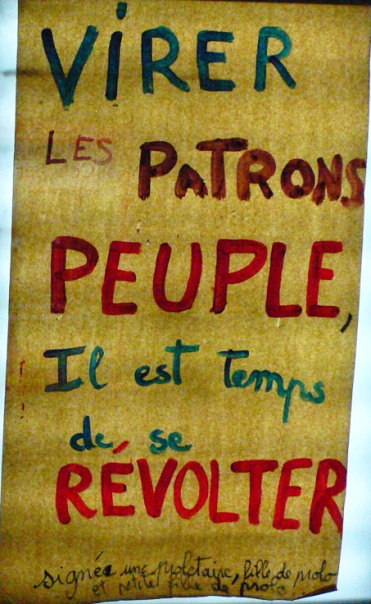 VIRER
LES PATRONS
PEUPLE,
Il est temps
de se
RÉVOLTER
signée une prolétaire, fille de prolo
et petite fille de prolo